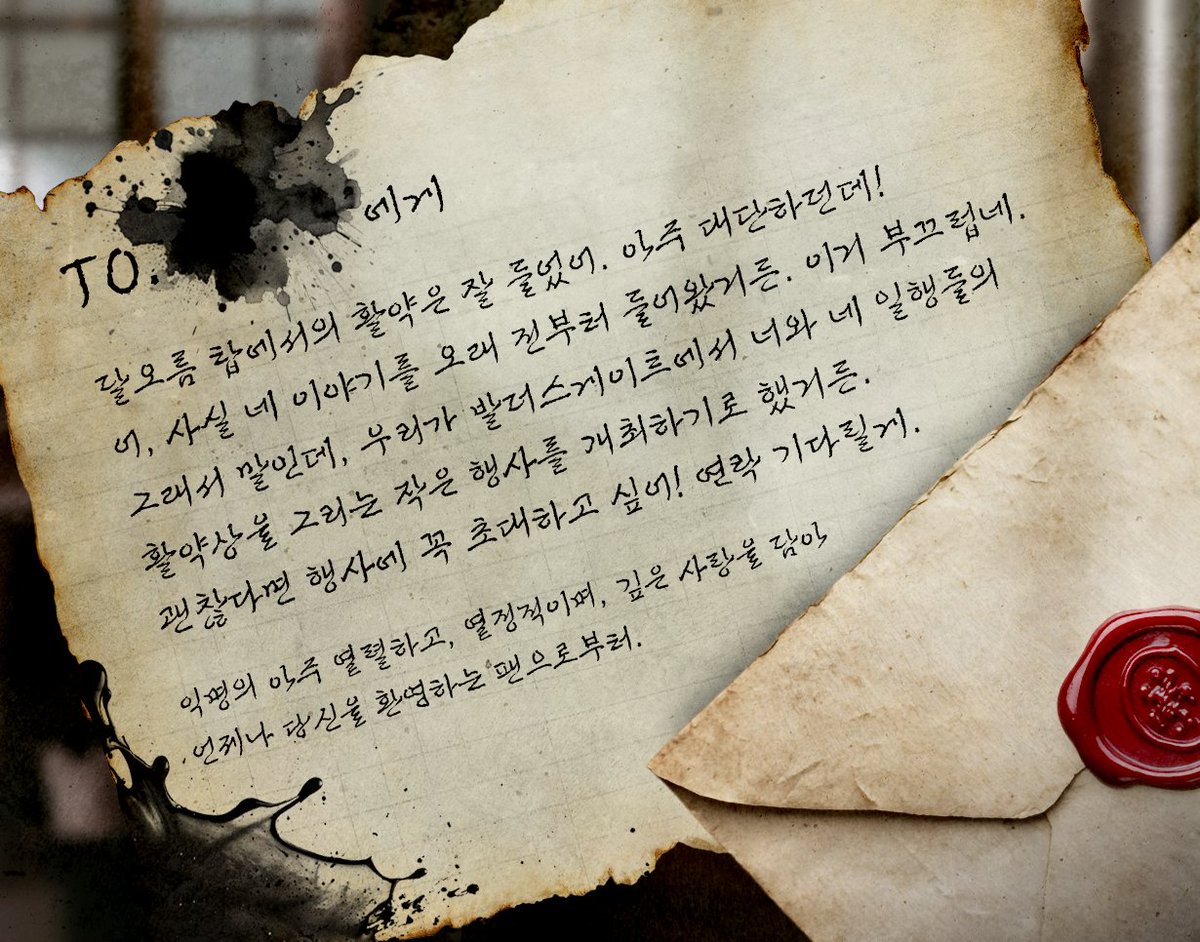 TO. 에게
달오름 탑에서의 활약은 잘 들었어. 아주 대단하던데!
어, 사실 네 이야기를 오래 전부터 들어왔거든. 이거 부끄럽네.
그래서 말인데, 우리가 발더스게이트에서 너와 네 일행들의
활약상을 그리는 작은 행사를 개최하기로 했거든.
괜찮다면 행사에 꼭 초대하고 싶어! 연락 기다릴게.
익명의 아주 열렬하고, 열정적이며, 깊은 사랑을 담아
언제나 당신을 환영하는 팬으로부터.